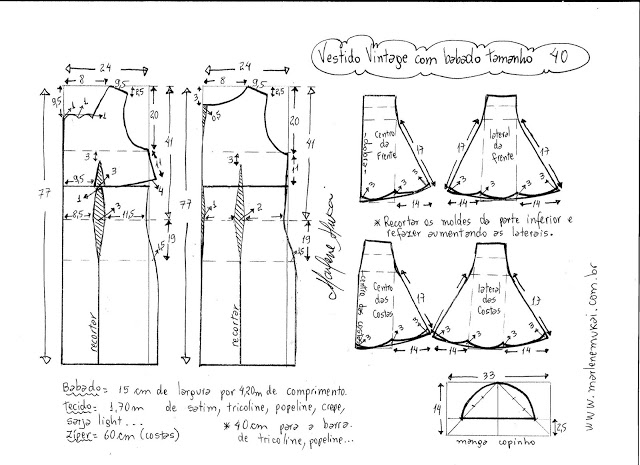 Vestido Vintage com babado tamanho 40
24
8
9,5
9,5
1
1
1
2,5
20
41
77
3
3
11
9,5
1
4
8,5
3
11,5
19
1,5
recortar
24
8
9,5
3
0,5
2,5
20
41
77
3
11
1
2
19
1,5
recortar
Marlene Mukai
dobra
Centro
da
Frente
17
3
3
14
lateral
da
Frente
17
3
3
14
* Recortar os moldes da parte inferior e
refazer aumentando as laterais.
centro das costas
Centro
das
Costas
17
3
3
14
lateral
das
Costas
17
3
3
14
14
33
14
2,5
manga copinho
Babado = 15 cm de largura por 4,20m de comprimento.
Tecido = 1,70m de satim, tricoline, popeline, crepe,
sarja light ...
Zíper = 60 cm (costas)
* 40 cm para a barra
de tricoline, popeline...
www.marlenemukai.com.br